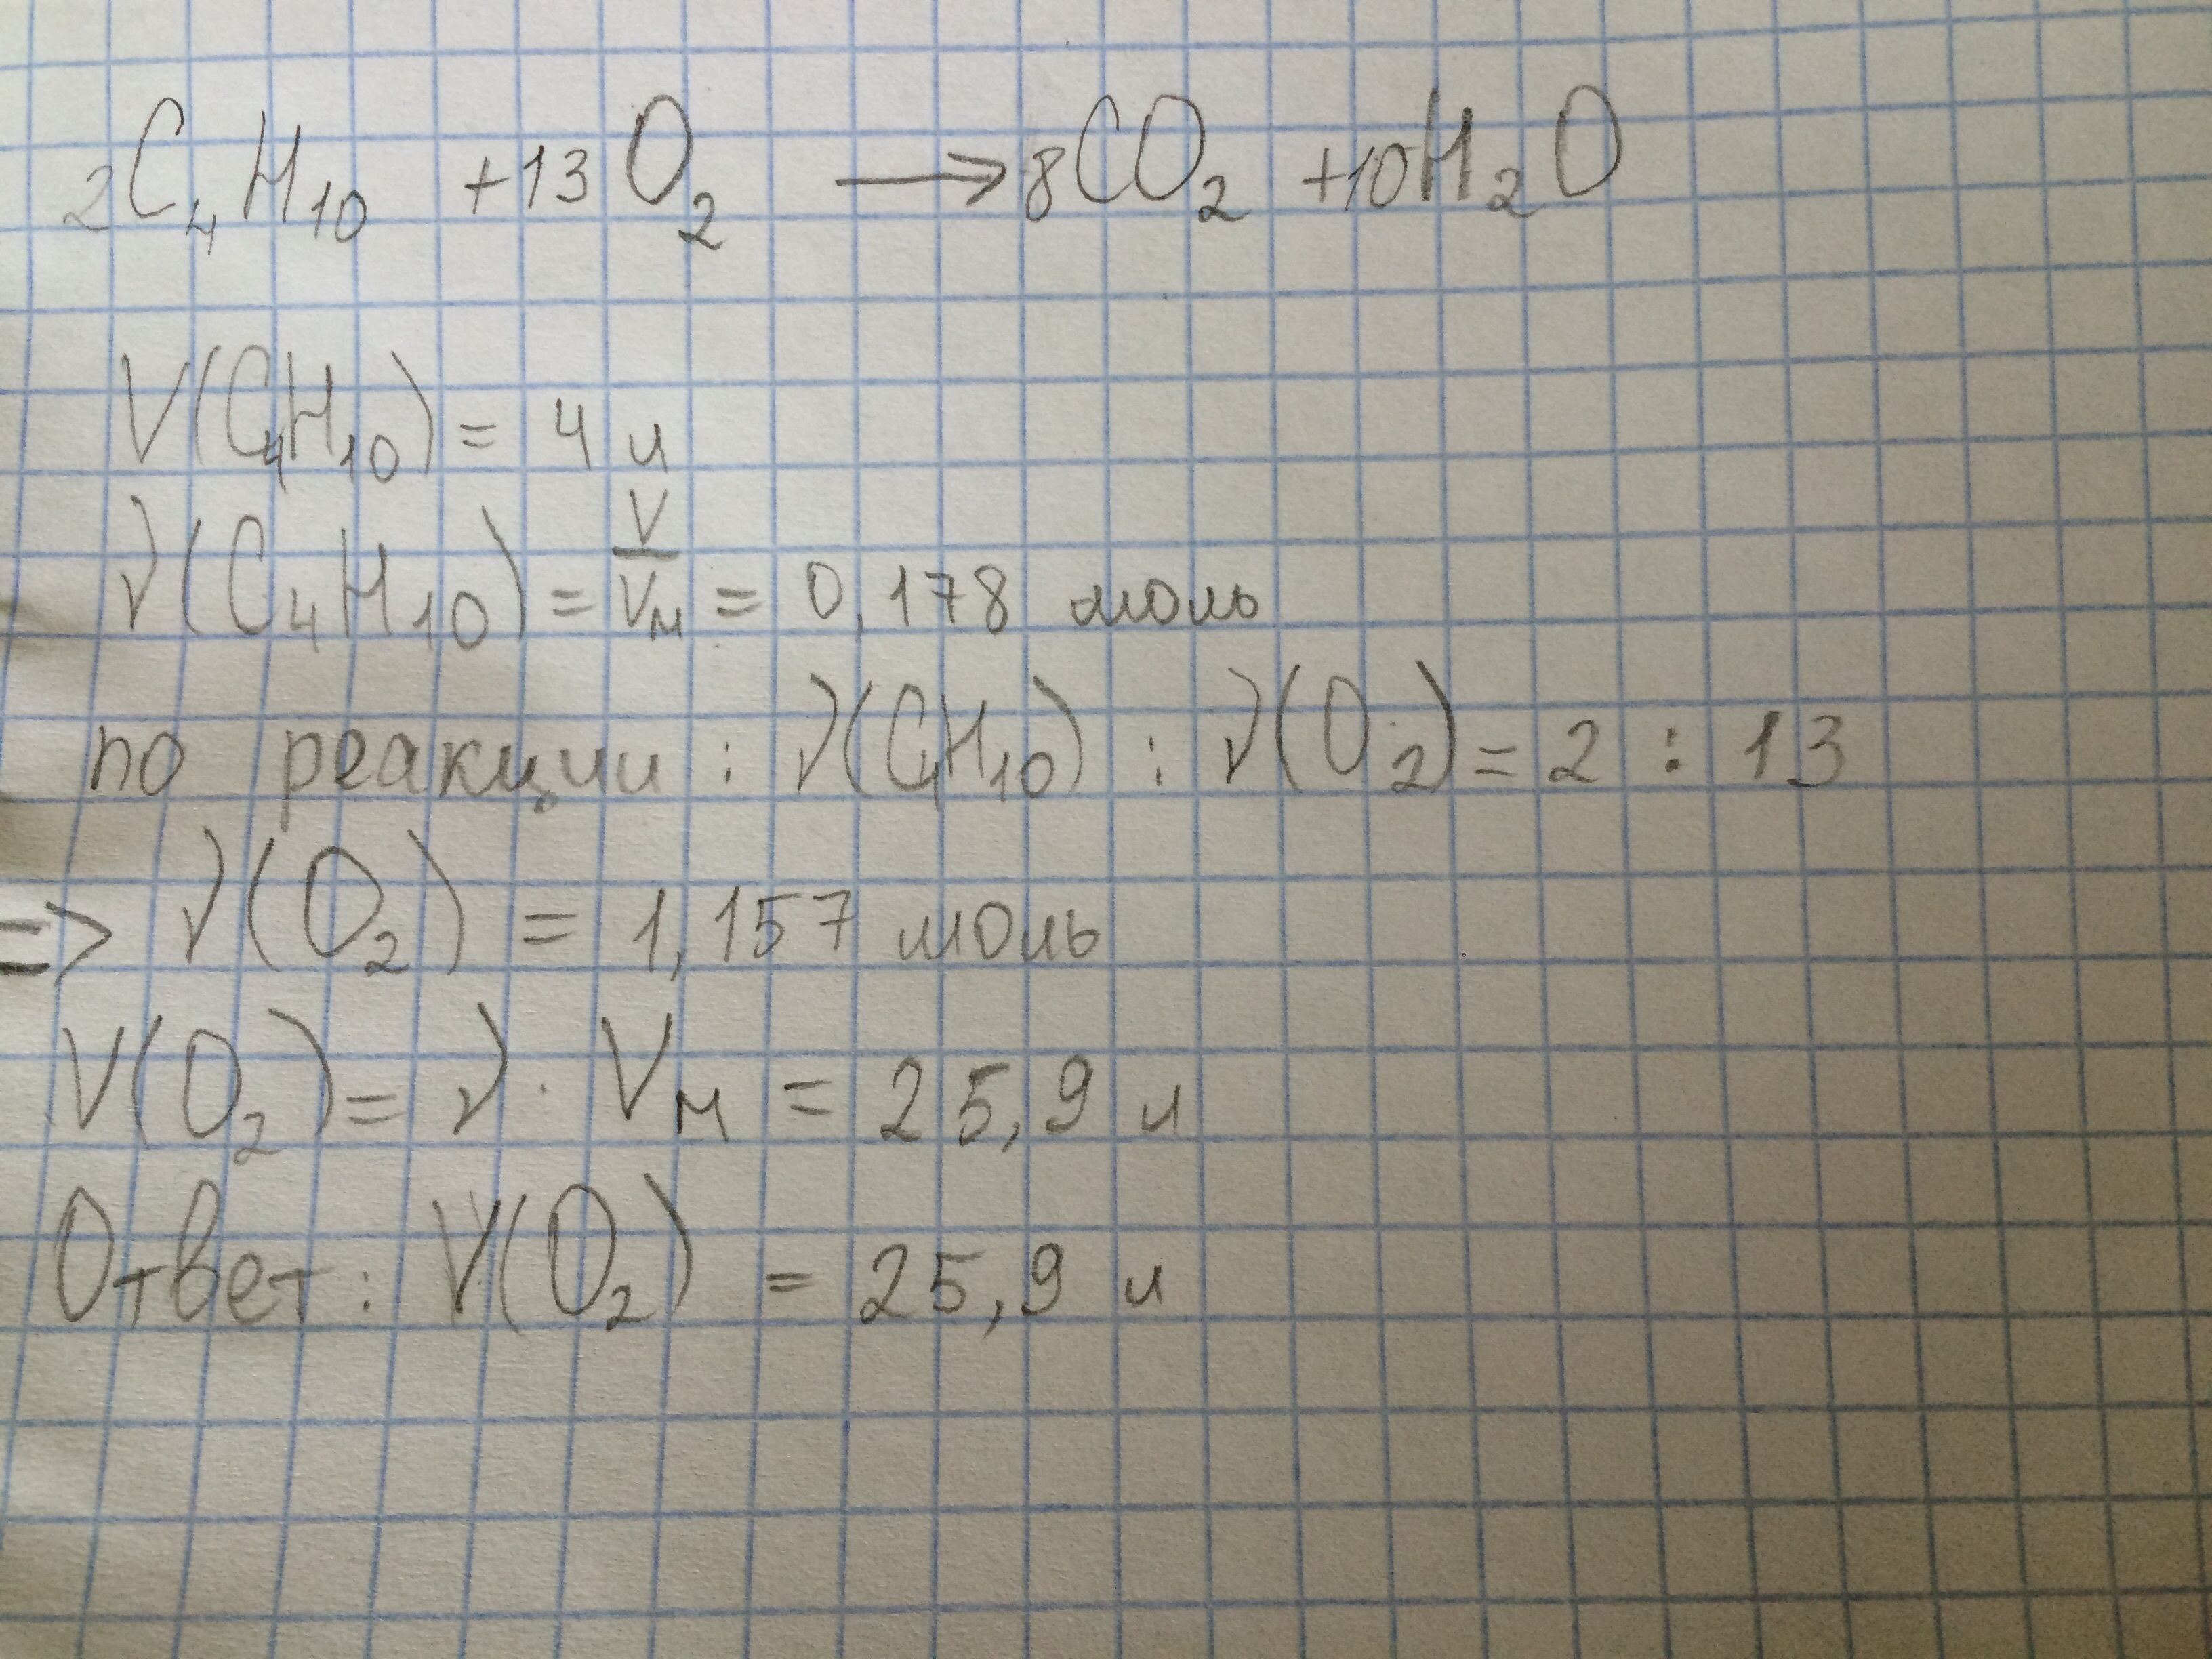 2C₄H₁₀ +13O₂ → 8CO₂ +10H₂O
V(C₄H₁₀) = 4 л
ν(C₄H₁₀) = V/Vм = 0,178 моль
по реакции : ν(C₄H₁₀) : ν(O₂) = 2 : 13
=> ν(O₂) = 1,157 моль
V(O₂) = ν · Vм = 25,9 л
Ответ : V(O₂) = 25,9 л